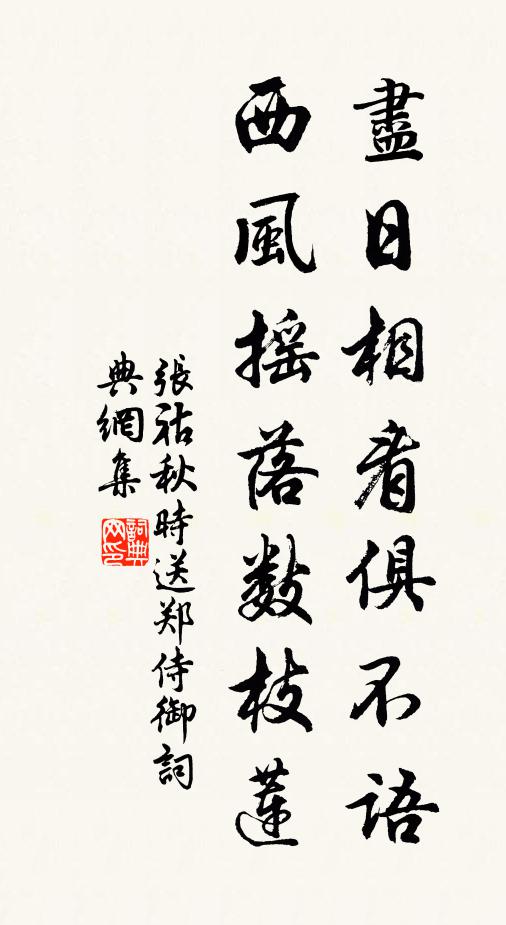 盡日相看俱不語
西風摇落數枝蓮
張祜秋時送郑侍御詞
典網集
詞典網印